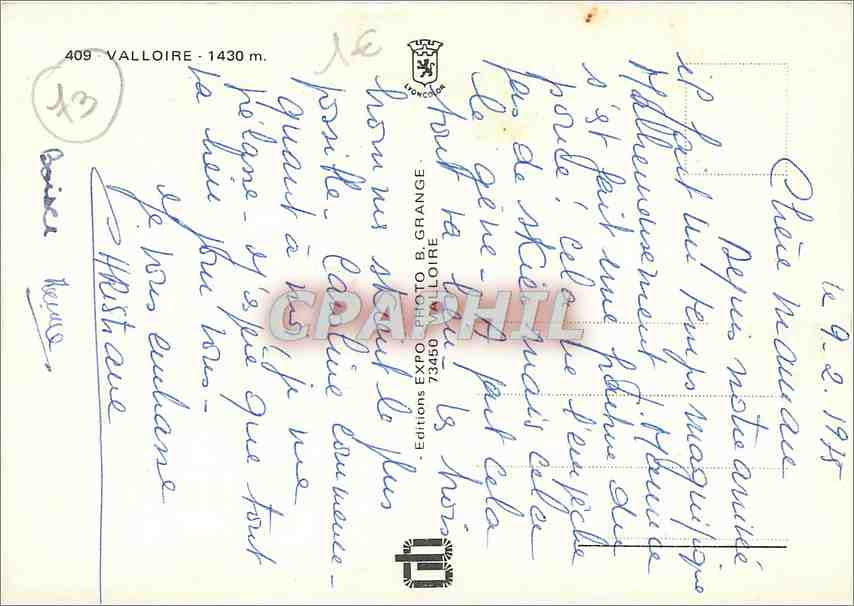 409 - VALLOIRE - 1430 m.
73
LYONCOLOR
Editions EXPO - PHOTO B. GRANGE -
73450 VALLOIRE
CPAPHIL
le 9.2.1975
Chère maman
Depuis notre arrivée
il fait un temps magnifique
Malheureusement
s'est fait une pointe du
pouce, cela ne l'empêche
pas de skier mais cela
le gène - A part cela
tout va bien, les trois
hommes skient le plus
possible -
quant à moi, je me
j'espère que tout
va bien pour vous -
Je vous embrasse
CHRISTIANE